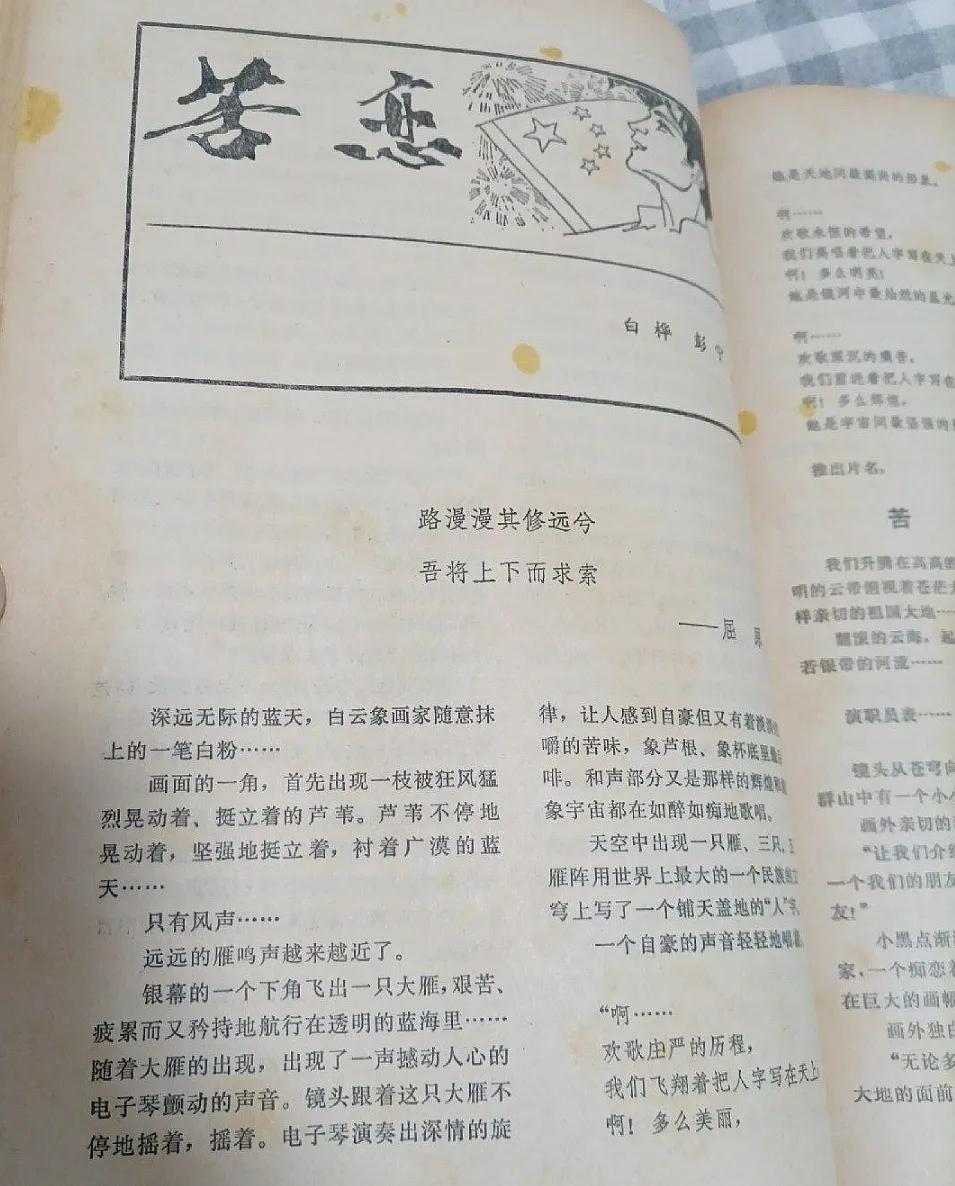 苦恋
白桦 彭宁
路漫漫其修远兮
吾将上下而求索
——屈 原
深远无际的蓝天，白云象画家随意抹
上的一笔白粉……
画面的一角，首先出现一枝被狂风猛
烈晃动着、挺立着的芦苇。芦苇不停地
晃动着，坚强地挺立着，衬着广漠的蓝
天……
只有风声……
远远的雁鸣声越来越近了。
银幕的一个下角飞出一只大雁，艰苦、
疲累而又矜持地航行在透明的蓝海里……
随着大雁的出现，出现了一声撼动人心的
电子琴颤动的声音。镜头跟着这只大雁不
停地摇着，摇着。电子琴演奏出深情的旋
律，让人感到自豪但又有着淡淡
嚼的苦味，象芦根、象杯底里最
啡。和声部分又是那样的辉煌和
象宇宙都在如醉如痴地歌唱。
天空中出现一只雁、三只、
雁阵用世界上最大的一个民族的
穹上写了一个铺天盖地的“人”字，
一个自豪的声音轻轻地唱
“啊……
欢歌庄严的历程，
我们飞翔着把人字写在天上
啊！多么美丽，
她是天地间最高尚的形象。
啊……
欢歌永恒的希望，
我们高唱着把人字写在天上
啊！多么明亮！
她是银河中最灿烂的星光
啊……
我们前进着把人字写在
啊！多么辉煌，
她是宇宙间最坚强的
推出片名。
苦
我们升腾在高高的
明的云带俯视着苍茫大
样亲切的祖国大地……
翻滚的云海，起
若银带的河流……
演职员表……
镜头从苍穹向
群山中有一个小小
画外亲切的
“让我们介绍
一个我们的朋友
友！”
小黑点渐渐
家，一个痴恋着
在巨大的画幅
画外独白
“无论多
大地的面前